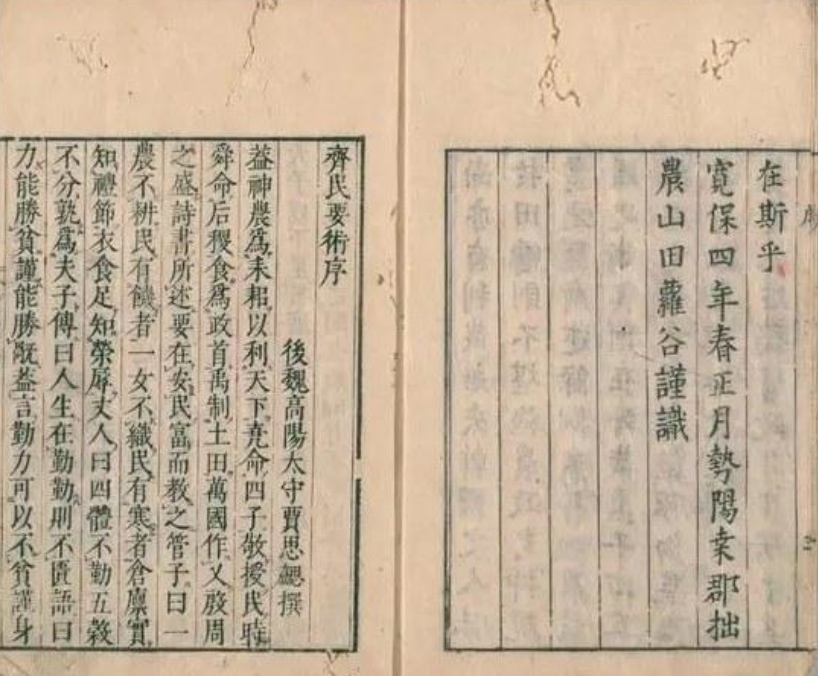 在斯乎
寛保四年春正月勢陽桒郡拙
農山田蘿谷謹識
齊民要術序
後魏高陽太守賈思勰撰
葢神農爲耒耜以利天下堯命四子敬授民時
舜命后稷食爲政首禹制土田萬國作乂殷周
之盛詩書所述要在安民富而教之管子曰一
農不耕民有饑者一女不織民有寒者倉廩實
知禮節衣食足知榮辱丈人曰四體不勤五穀
不分孰爲夫子傳曰人生在勤勤則不匱語曰
力能勝貧謹能勝旤葢言勤力可以不貧謹身